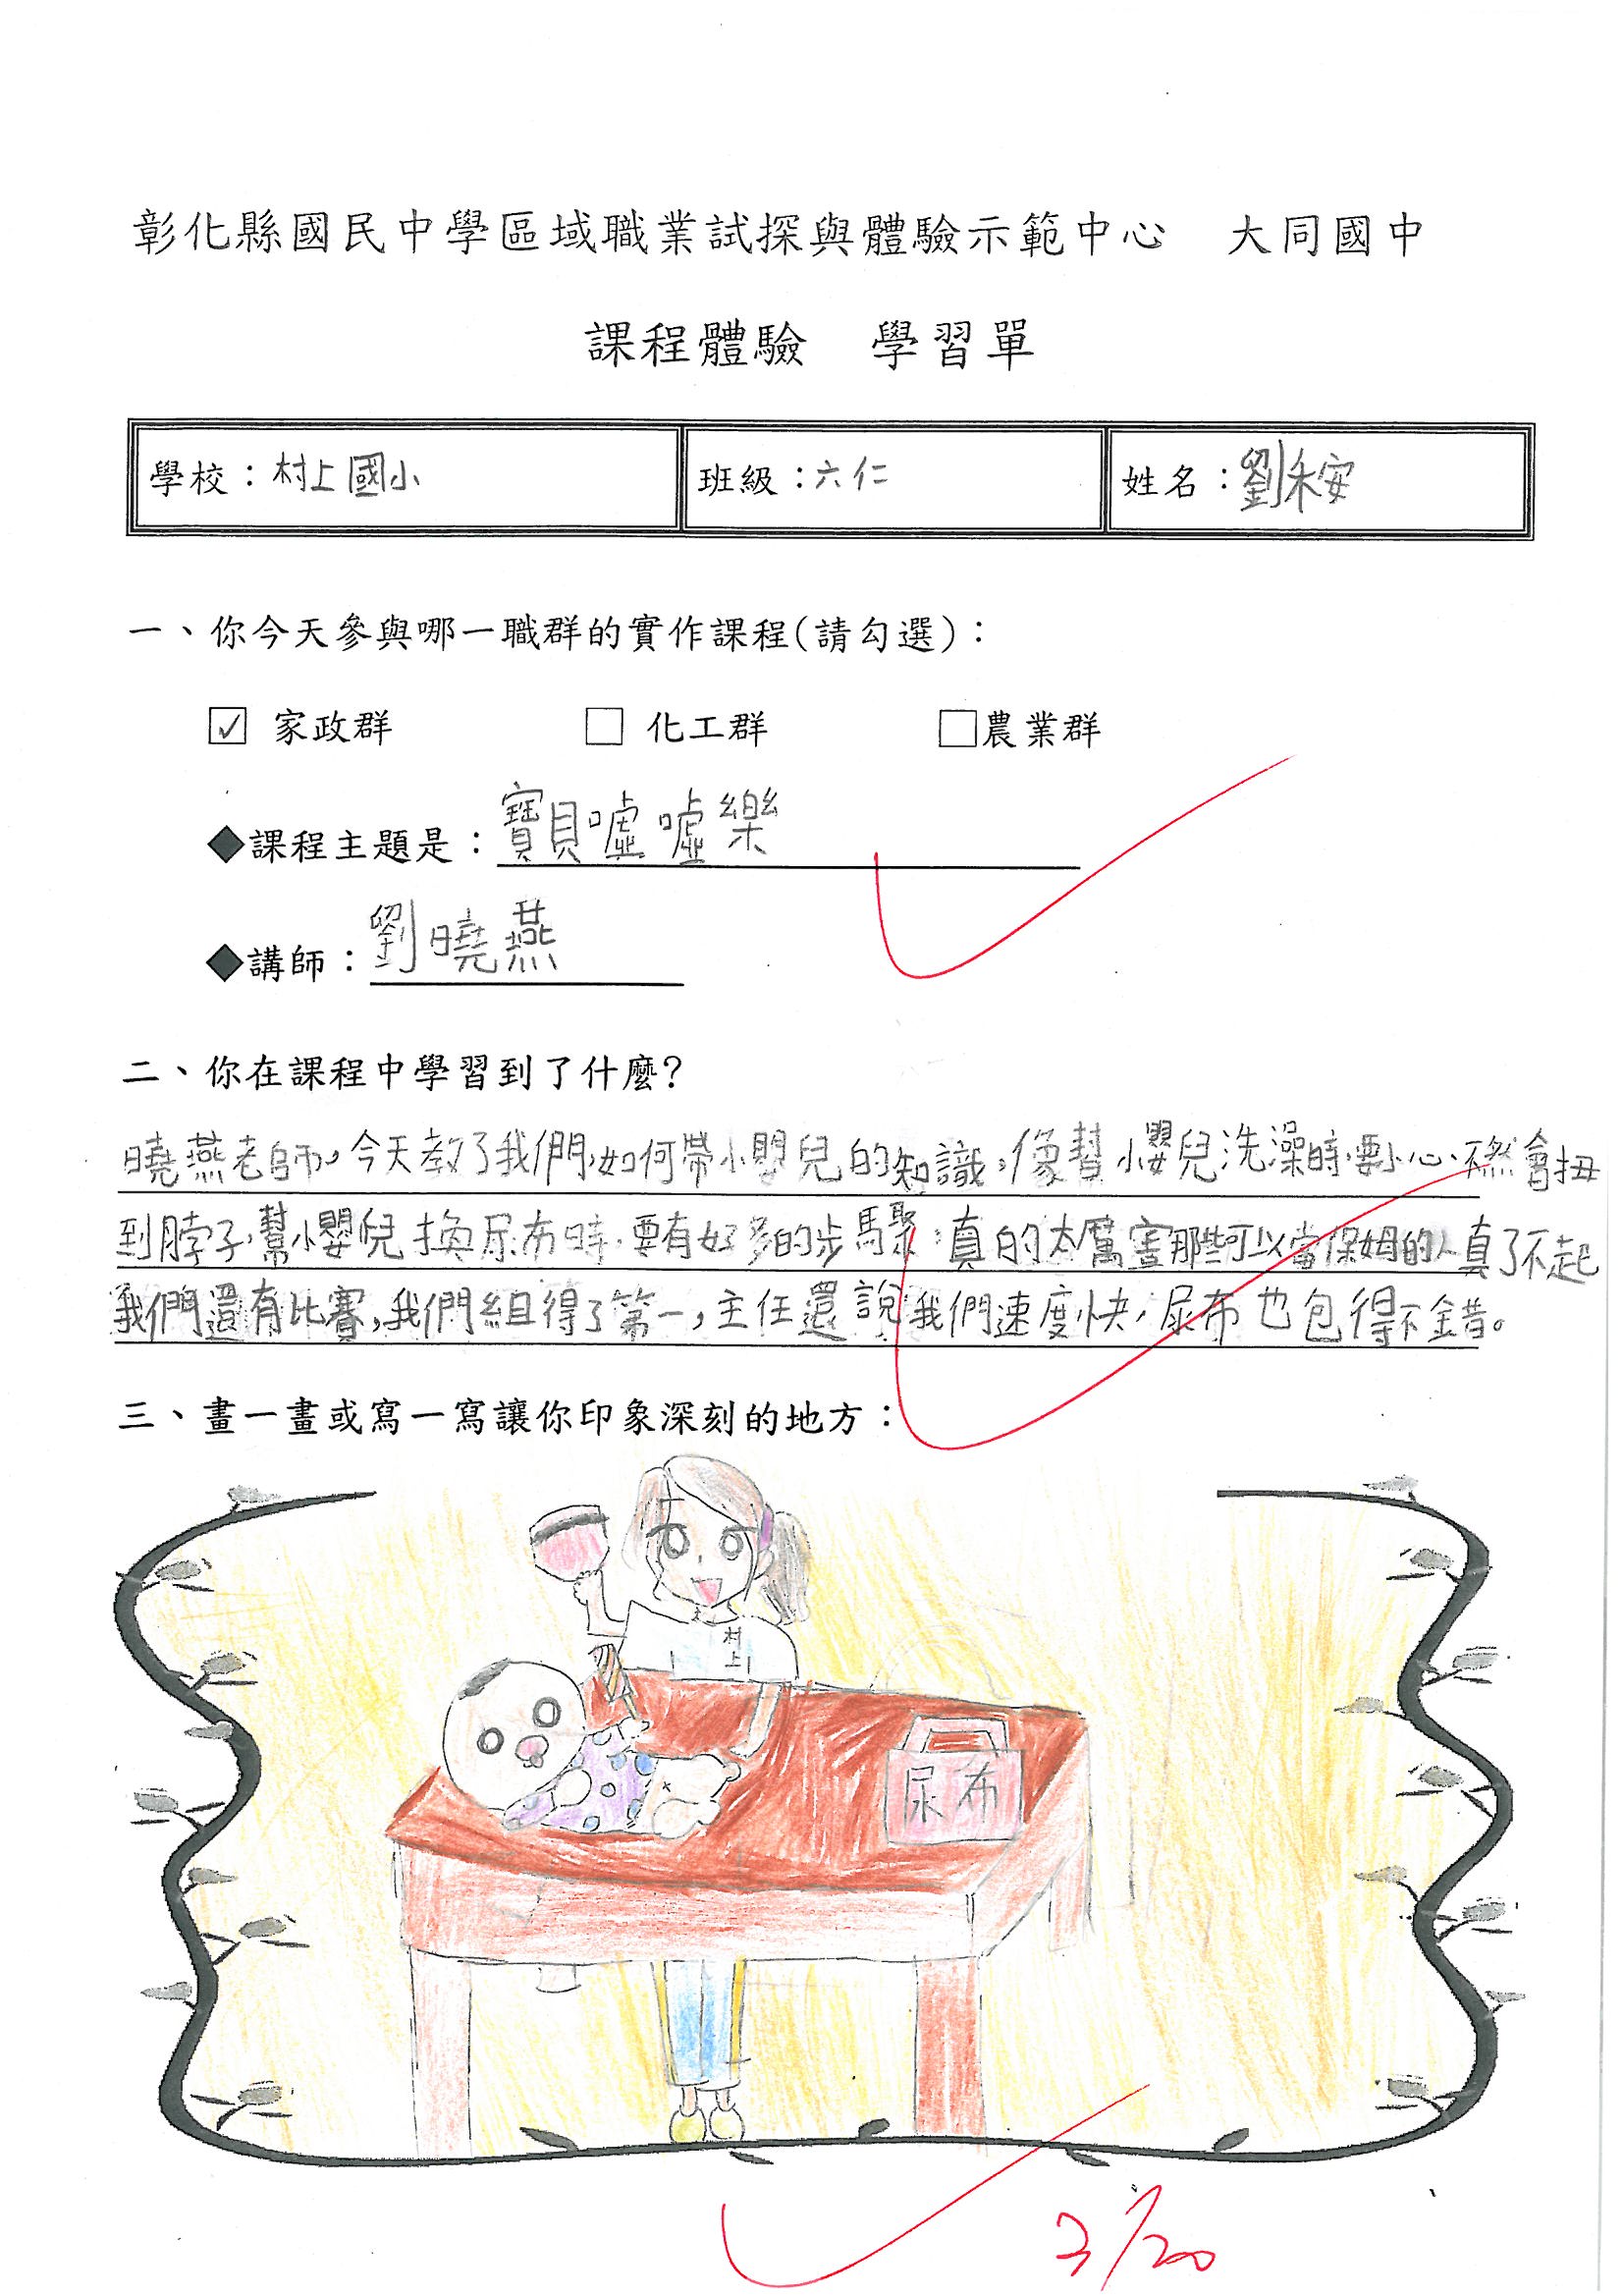 彰化縣國民中學區域職業試探與體驗示範中心 大同國中
課程體驗 學習單
學校：村上國小 班級：六仁 姓名：劉禾安
一、你今天參與哪一職群的實作課程(請勾選)：
☑ 家政群 ☐ 化工群 ☐農業群
◆課程主題是：寶貝噓噓樂
◆講師：劉曉燕
二、你在課程中學習到了什麼?
曉燕老師，今天教了我們，如何帶小嬰兒的知識，像幫小嬰兒洗澡時，要小心、不然會扭
到脖子，幫小嬰兒換尿布時，要有好多的步驟，真的太厲害那些可以當保姆的人真了不起
我們還有比賽，我們組得了第一，主任還說我們速度快，尿布也包得不錯。
三、畫一畫或寫一寫讓你印象深刻的地方：
村上
尿布
3/20